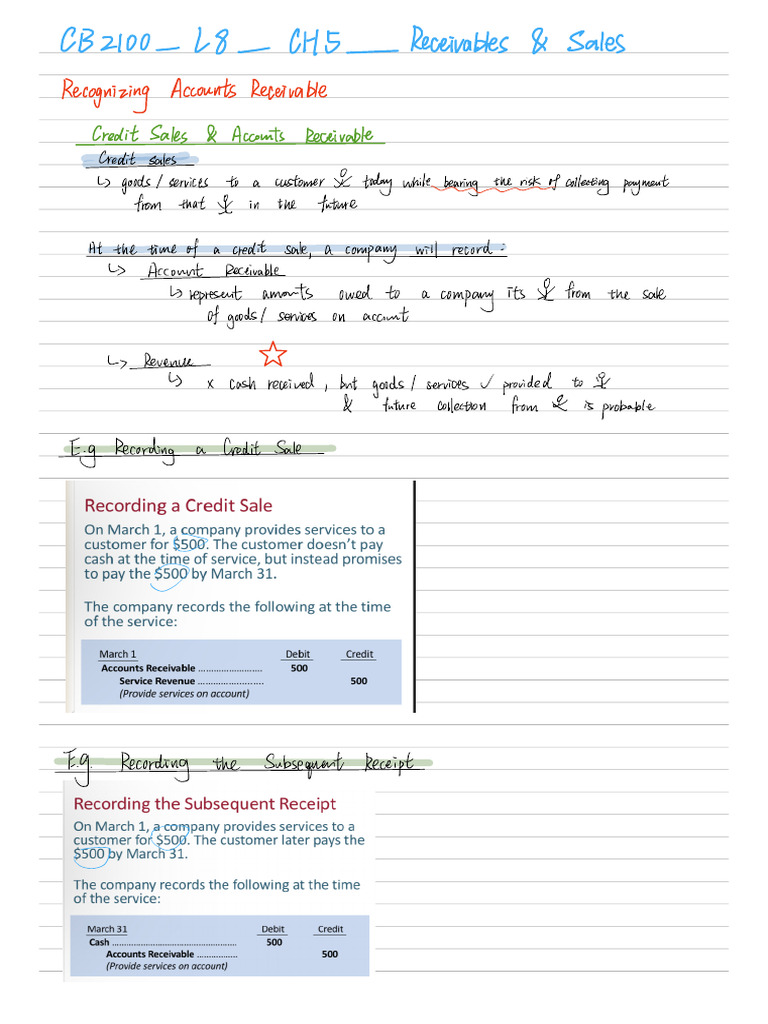 CB2100_L8_CH5___Receivables & Sales
Recognizing Accounts Receivable
Credit Sales & Accounts Receivable
Credit sales
↳ goods / services to a customer 웃 today while bearing the risk of collecting payment
from that 웃 in the future
At the time of a credit sale, a company will record :
↳ Account Receivable
↳ represent amounts owed to a company its 웃 from the sale
of goods / services on account
↳ Revenue ☆
↳ x cash received, but goods / services ✓ provided to 웃
& future collection from 웃 is probable
E.g Recording a Credit Sale
Recording a Credit Sale
On March 1, a company provides services to a
customer for $500. The customer doesn't pay
cash at the time of service, but instead promises
to pay the $500 by March 31.
The company records the following at the time
of the service:
March 1 Debit Credit
Accounts Receivable ........................ 500
Service Revenue ........................ 500
(Provide services on account)
E.g. Recording the Subsequent Receipt
Recording the Subsequent Receipt
On March 1, a company provides services to a
customer for $500. The customer later pays the
$500 by March 31.
The company records the following at the time
of the service:
March 31 Debit Credit
Cash ................................................ 500
Accounts Receivable ................ 500
(Provide services on account)